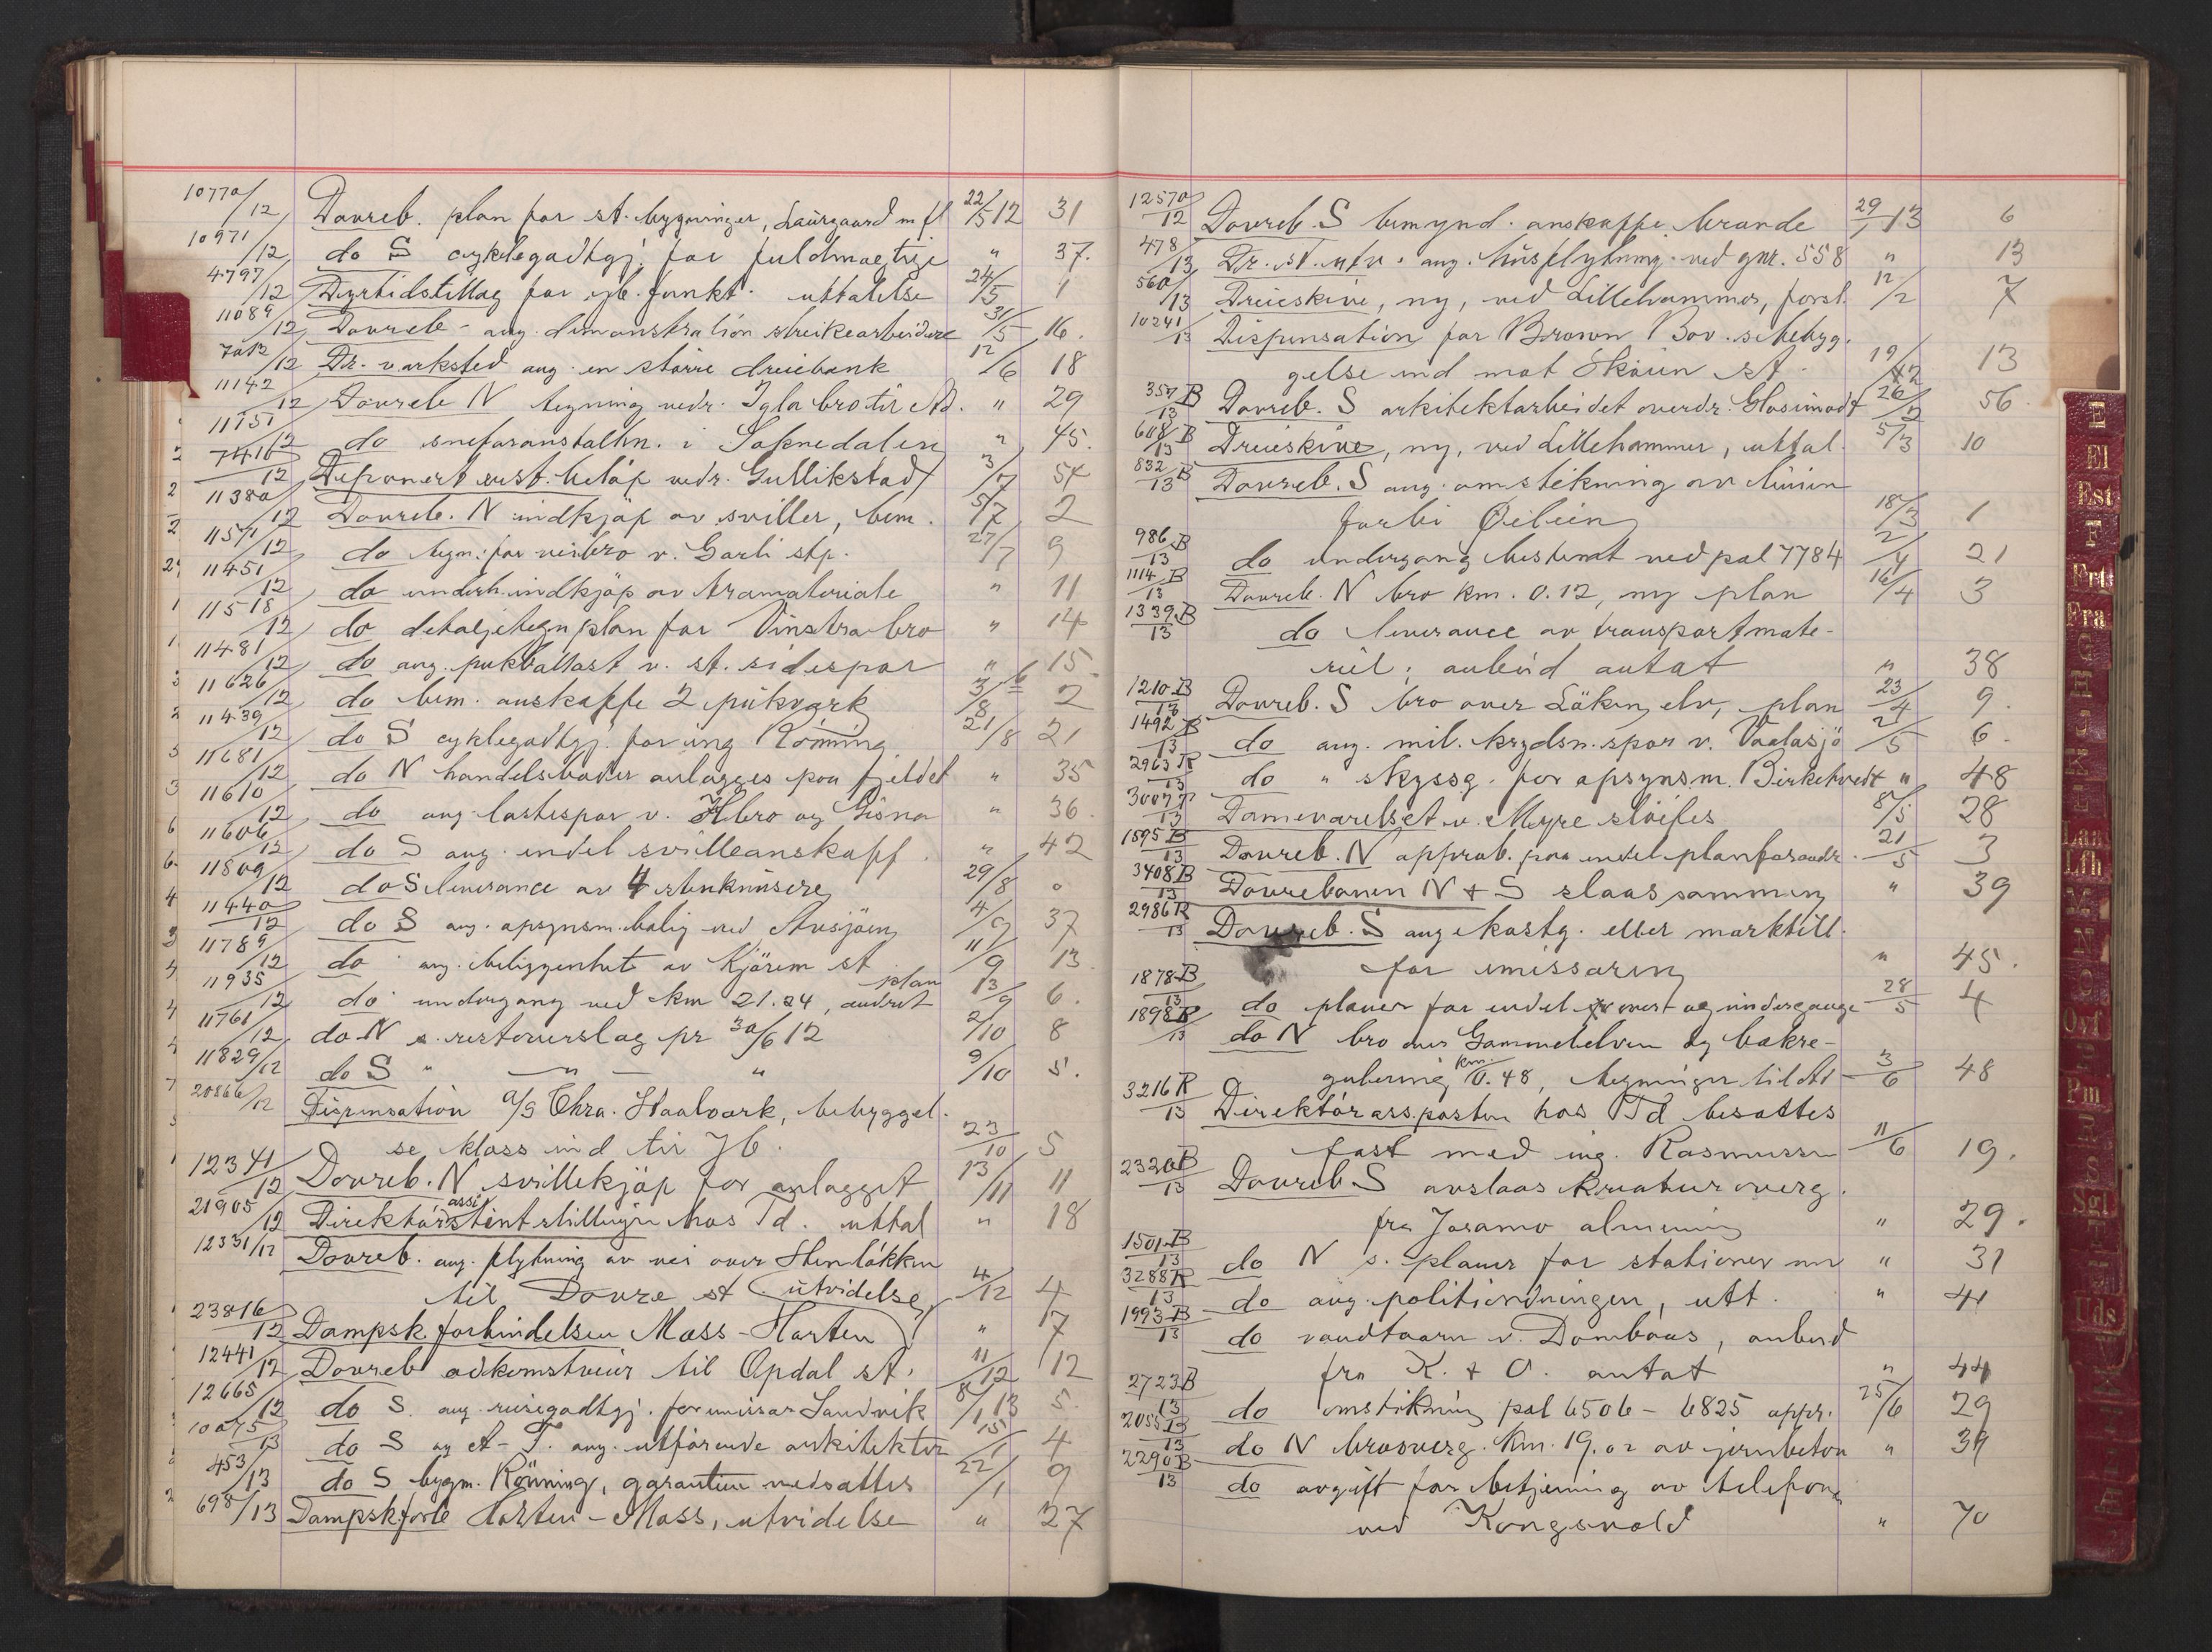 10770/12 Dovreb. plan for st. bygninger, Laurgaard m fl 22/5 12 31
10971/12 do S cyklegodtgj. for fuldmægtige " 37.
4797/12 Dyrtidstillæg for jb. funkt. uttalelse 24/5 1
11089/12 Dovreb. ang. demonstration streikearbeidere 31/5 16.
7012/12 Dr. verksted ang. en større dreiebænk 12/6 18
11142/12 Dovreb N tegning vedr. Igla bro til Ad. " 29
11151/12 do sneforanstaltn. i Soknedalen " 45.
7416/12 Deponert erst. beløp vedr. Gullikstad 3/7 54
11380/12 Dovreb. N indkjøp av sviller, bem. 5/7 2
11571/12 do tegn. for veibro v. Garli stp. 27/7 9
11451/12 do underh. indkjøp av tramateriale " 11
11518/12 do detaljetegn plan for Vinstra bro " 14
11481/12 do ang. pukballast v. st. sidespor " 15.
11626/12 do bem. anskaffe 2 pukverk 3/8 2
11439/12 do S cyklegodtgj. for ing Rönning 21/8 21
11681/12 do N handelsboder anlægges paa fjeldet " 35
11610/12 do ang. lastespor v. bro og Gisna " 36.
11606/12 do S ang. endel svilleanskaff. " 42
11809/12 do S leverance av 4 stenknusere 29/8 0
11440/12 do S ang. opsynsm. bolig ved Avsjøen 4/9 37
11789/12 do ang. beliggenhet av Kjørem st 11/9 13.
11935/12 do undergang ved km 21.24, plan ændret 13/9 6.
11761/12 do N s. restoverslag pr 30/6 12 2/10 8
11829/12 do S " — " — " 9/10 5.
20866/12 Dispensation A/S Chra. Staalverk, bebyggel-
se kloss ind til Jb. 23/10 5
12341/12 Dovreb. N svillekjøp for anlægget 13/11 11
21905/12 Direktørassistentstillingen hos Td. uttal " 18
12331/12 Dovreb. ang. flytning av vei over Stenløkken
til Dovre st 4/12 4
23816/12 Dampsk. forbindelsen Moss - Horten (utvidelse) " 17
12441/12 Dovreb adkomstveier til Opdal st. 11/12 12
12665/12 do S. ang. reisegodtgj. for emissær Sandvik 8/1 13 5.
10075/13 do S og A-T. ang. utførende arkitekter 15/1 4
453/13 do S bygm. Rönning, garantien nedsættes 22/1 9
698/13 Dampskforb Horten - Moss, utvidelse " 27
12570/12 Dovreb. S bemynd. anskaffe brande 29/1 13 6
478/13 Dr. st. utv. ang. husflytning ved gnr. 558 " 13
560/13 Dreieskive, ny, ved Lillehammer, forsl. 12/2 7
10241/13 Dispensation for Brown Bov. s bebyg-
gelse ind mot Skøien st. 19/2 13
357 B/13 Dovreb. S arkitektarbeidet overdr. Glosimodt 26/2 56.
608 B/13 Dreieskive, ny, ved Lillehammer, uttal. 5/3 10
832 B/13 Dovreb. S ang. omstikning av linien
forbi Øibein 18/3 1
986 B/13 do undergang bestemt ved pæl 7784 2/4 21
1114 B/13 Dovreb. N bro km. 0.12, ny plan 16/4 3
1339 B/13 do leverance av transportmate-
riel; anbud antat " 38
1210 B/13 Dovreb. S bro over Låken elv, plan 23/4 9.
1492 B/13 do ang. mil. krydsn. spor v. Vaalasjø 2/5 6.
2963 R/13 do " skyssg. for opsynsm. Birketvedt " 48
3007 /13 Dameværelset v. Myre sløifes 8/5 28
1895 B/13 Dovreb. N approb. paa endel planforandr. 21/5 3
3408 B/13 Dovrebanen N + S slaas sammen " 39
2986 R/13 Dovreb. S ang kostg. eller marktill.
for emissæren " 45.
1878 B/13 do planer for endel over og undergange 28/5 4
1898 B/13 do N bro over Gammelelven og bække-
gulering km. 0.48, tegninger til Ad 3/6 48
3216 R/13 Direktørass.posten hos Td besættes
fast med ing. Rasmussen 11/6 19.
2326 B/13 Dovreb S avslaas kreaturoverg.
fra Joramo alminning " 29.
1501 B/13 do N s. planer for stationer mv " 31
3288 R/13 do ang. politiordningen, utt. " 41
1993 B/13 do vandtaarn v. Dombaas, anbud
fra K. & O. antat " 44
2723 B/13 do omstikning pæl 6506 - 6825 appr. 25/6 29
2055 B/13 do N brooverg. km. 19.02 av jernbeton " 39
2290 B/13 do avgift for betjening av telefonen
ved Kongsvold " 70
E
El
Est
F
Frt
Fra
G
H
K
Lan
Lfh
M
N
O
Ovf
P
Pm
R
S
Sgl
T
Uds